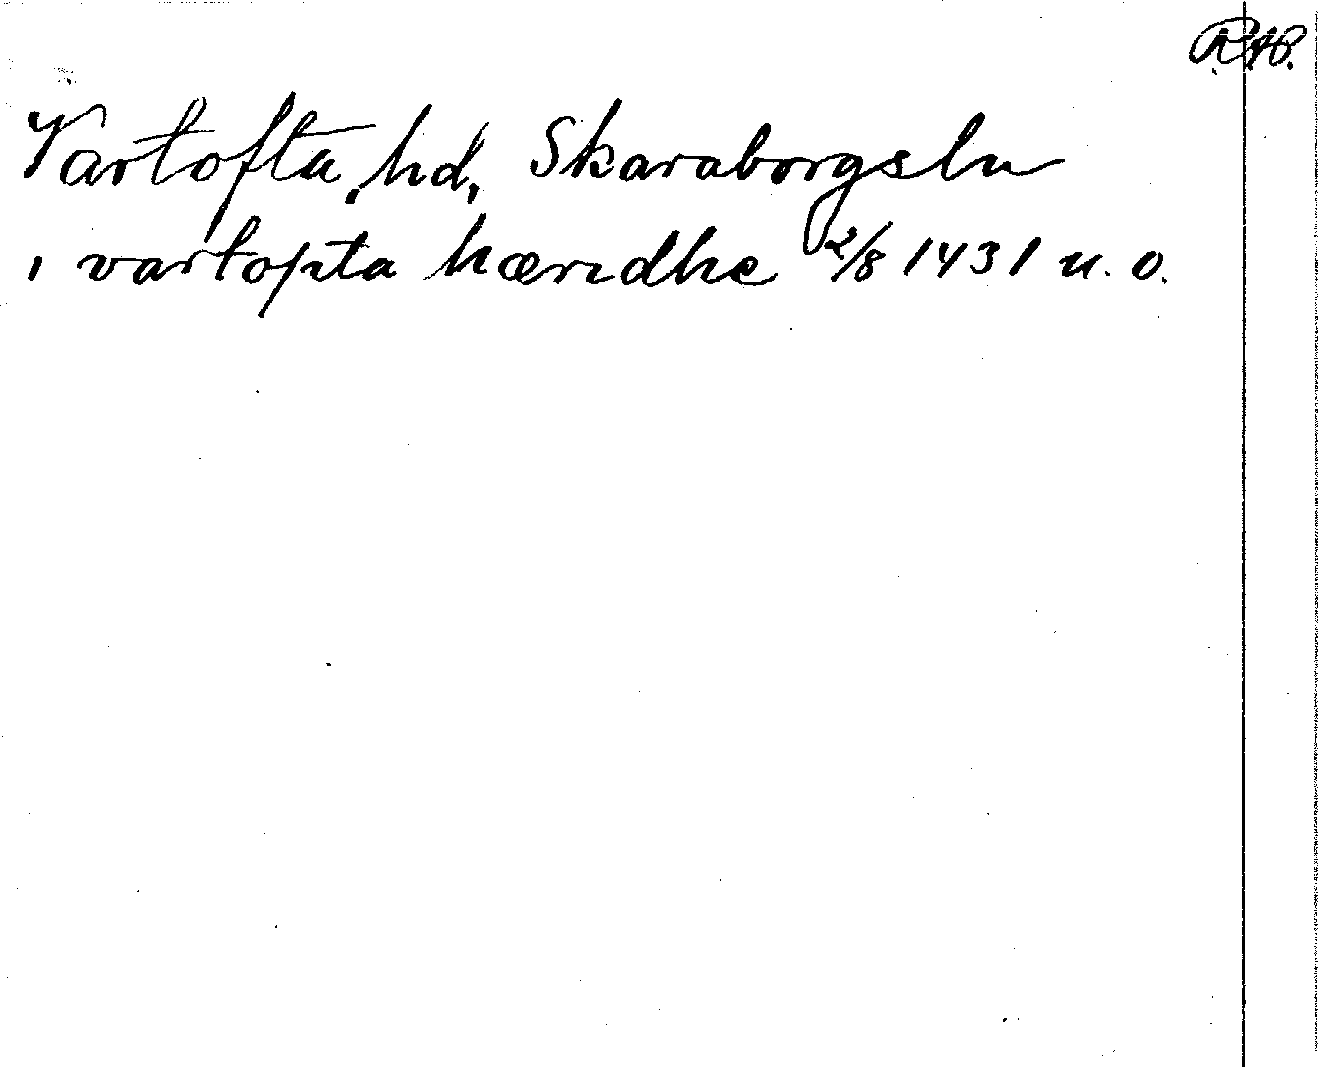 RAP.
Vartofta, hd, Skaraborgsln
i vartopta hæridhe 2/8 1431 u. o.